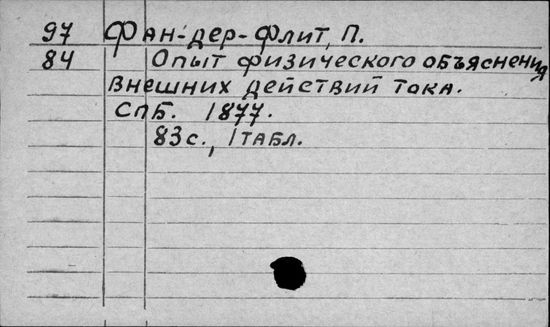 97 Фан-дер-Флит, П.
84 Опыт физического объяснения
внешних действий тока.
СПБ. 1877.
83с., 1 табл.